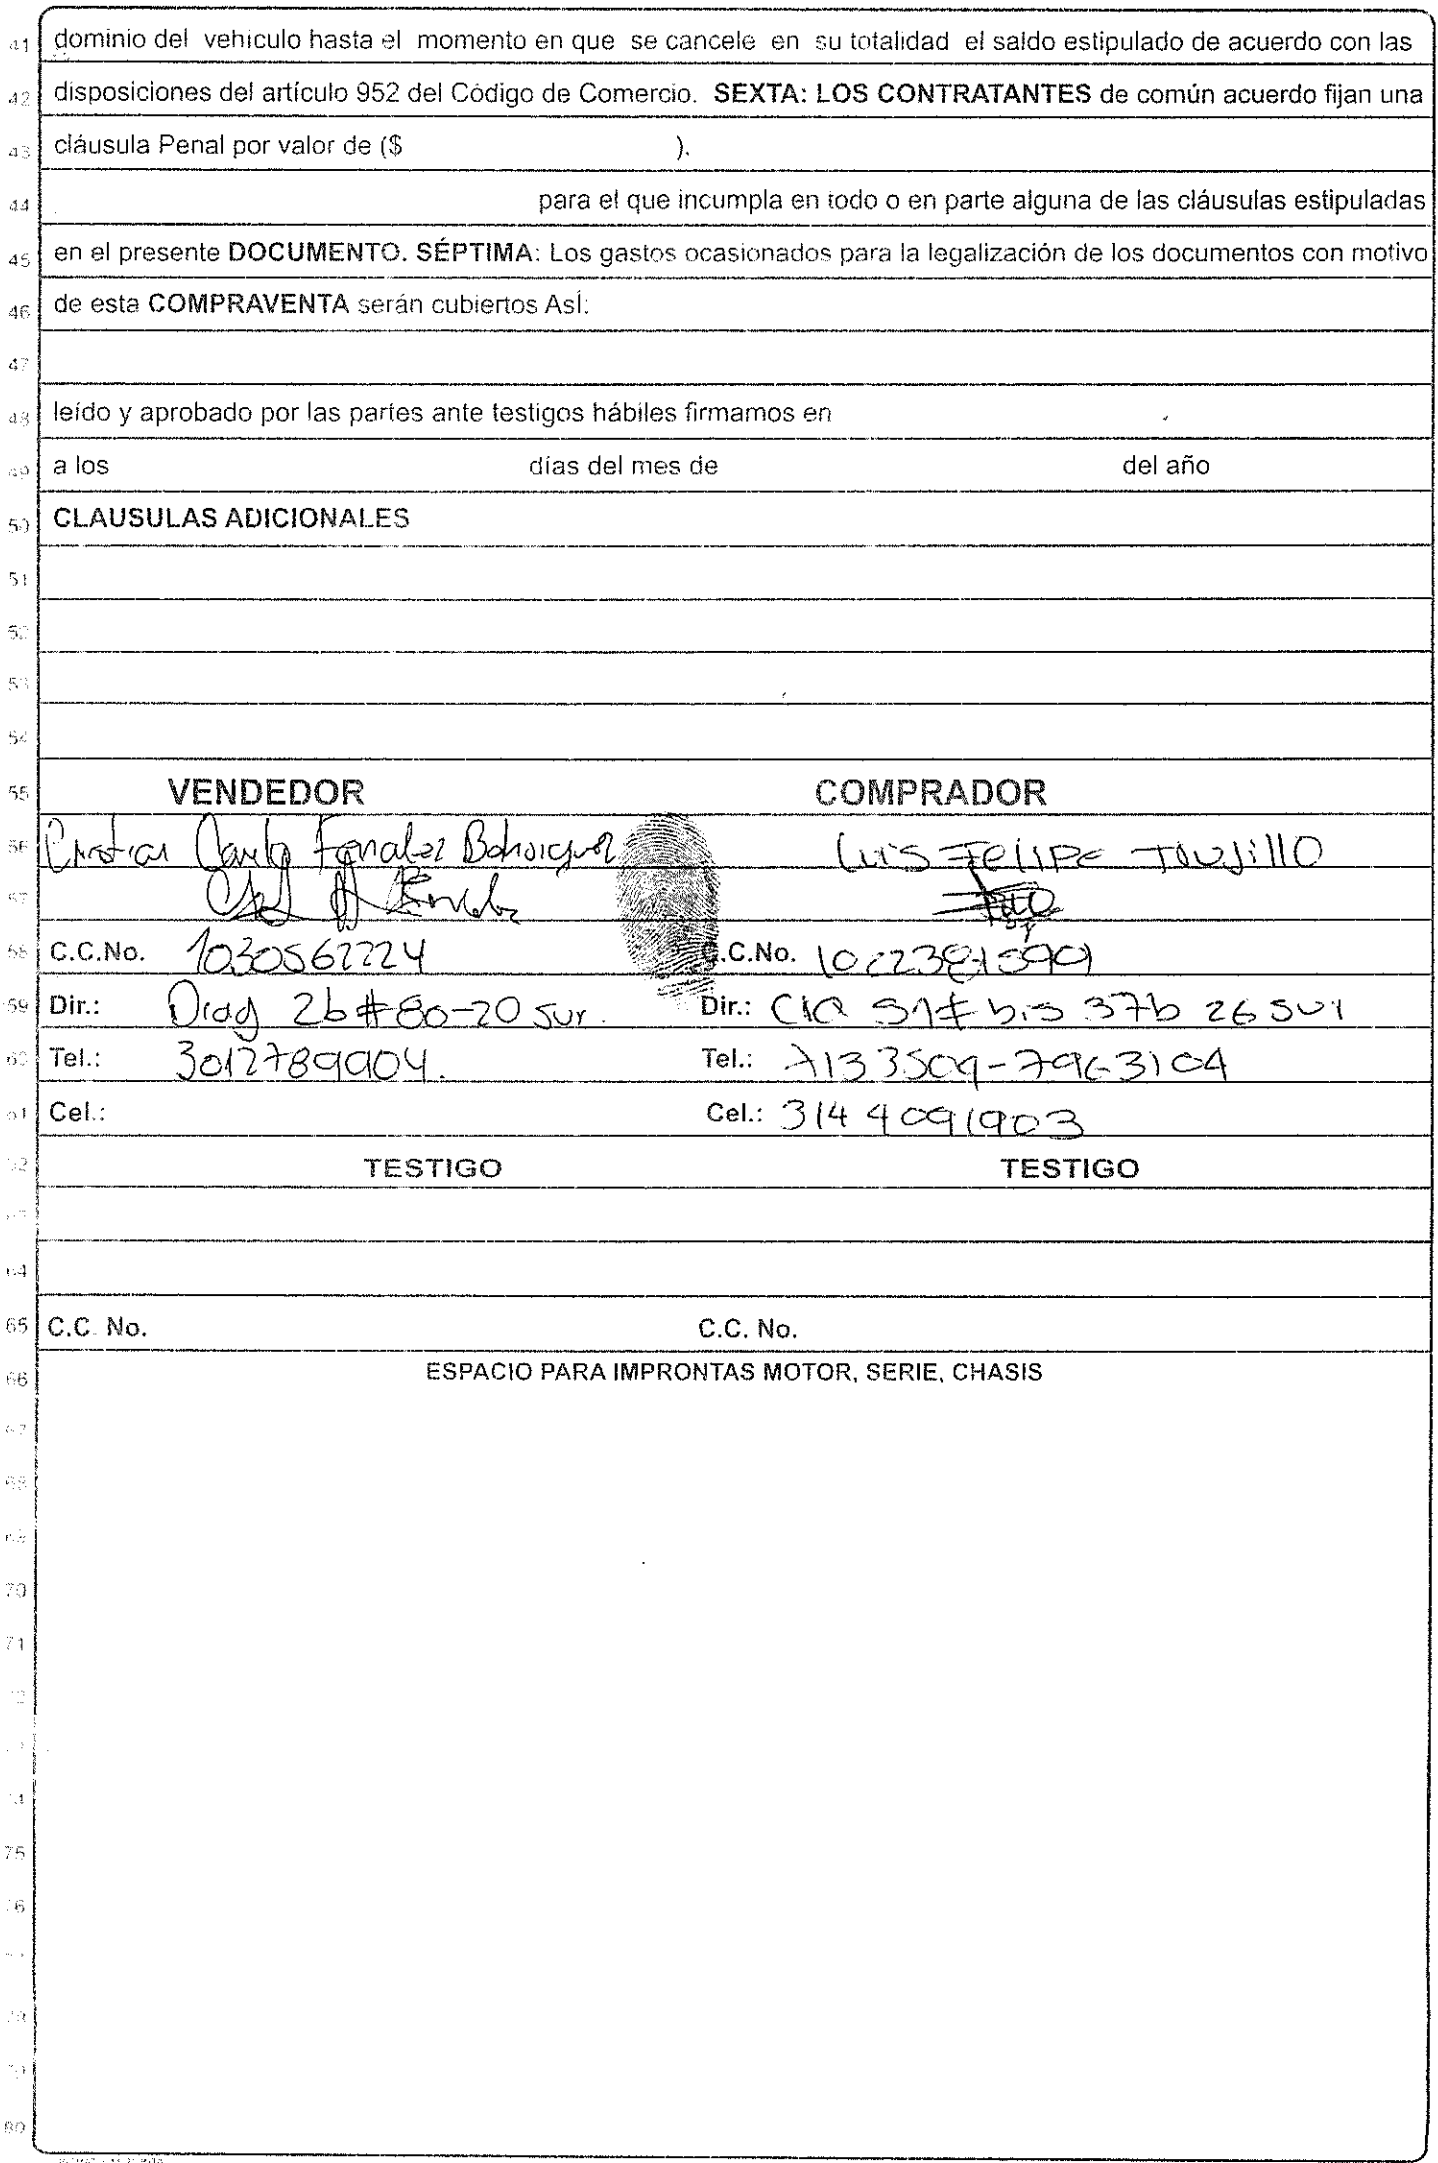 41 dominio del vehiculo hasta el momento en que se cancele en su totalidad el saldo estipulado de acuerdo con las
42 disposiciones del artículo 952 del Código de Comercio. SEXTA: LOS CONTRATANTES de común acuerdo fijan una
43 cláusula Penal por valor de ($ ).
44 para el que incumpla en todo o en parte alguna de las cláusulas estipuladas
45 en el presente DOCUMENTO. SÉPTIMA: Los gastos ocasionados para la legalización de los documentos con motivo
46 de esta COMPRAVENTA serán cubiertos AsÍ:
47
48 leído y aprobado por las partes ante testigos hábiles firmamos en
49 a los días del mes de del año
50 CLAUSULAS ADICIONALES
51
52
53
54
55 VENDEDOR COMPRADOR
56 Luis Felipe Trujillo
57
58 C.C.No. 1030562224 C.C.No.
59 Dir.: Diag 2b # 80-20 sur. Dir.: bis 37b 26 sur
60 Tel.: 3012789904. Tel.: 7133509-7963104
61 Cel.: Cel.: 3144091903
62 TESTIGO TESTIGO
64
65 C.C. No. C.C. No.
66 ESPACIO PARA IMPRONTAS MOTOR, SERIE, CHASIS
67
68
69
70
71
75
76
80